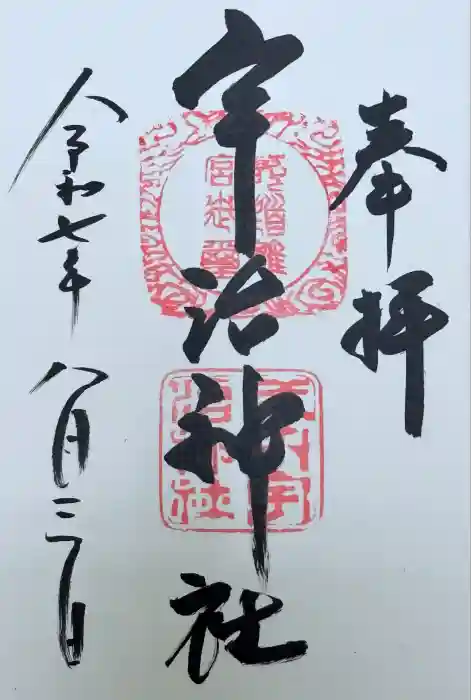 奉拝
宇治神社
式内宇
治神社
令和七年八月三日